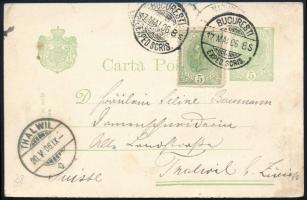 BUCUREȘTI
17 MAI 06 8 S
EXPED. SCRIS.
BUCUREȘTI
17 MAI 06 8 S
EXPED. SCRIS.
5
5
Carta Pos
D Fräulein Seline Baumann
Damenschneiderin
Alte Landstrasse
Thalwil b. Zürich
Suisse
THALWIL